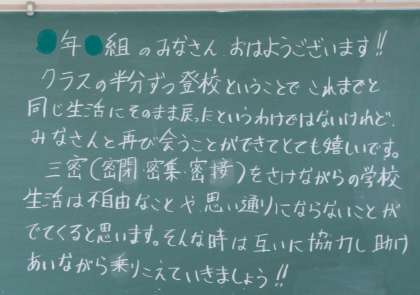 年 組 のみなさん おはようございます!!
クラスの半分ずつ登校ということで これまでと
同じ生活にそのまま戻ったというわけではないけれど、
みなさんと再び会うことができてとても嬉しいです。
三密(密閉・密集・密接)をさけながらの学校
生活は不自由なことや思い通りにならないことが
でてくると思います。そんな時は互いに協力し助け
あいながら乗りこえていきましょう!!